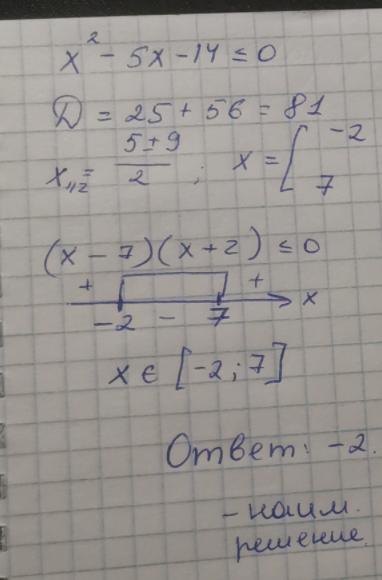 x² - 5x - 14 ≤ 0
D = 25 + 56 = 81
x₁,₂ = (5 ± 9)/2 ; x = [ -2
7
(x - 7)(x + 2) ≤ 0
+ +
-2 - 7 x
x ∈ [-2; 7]
Ответ: -2.
- наим.
решение.